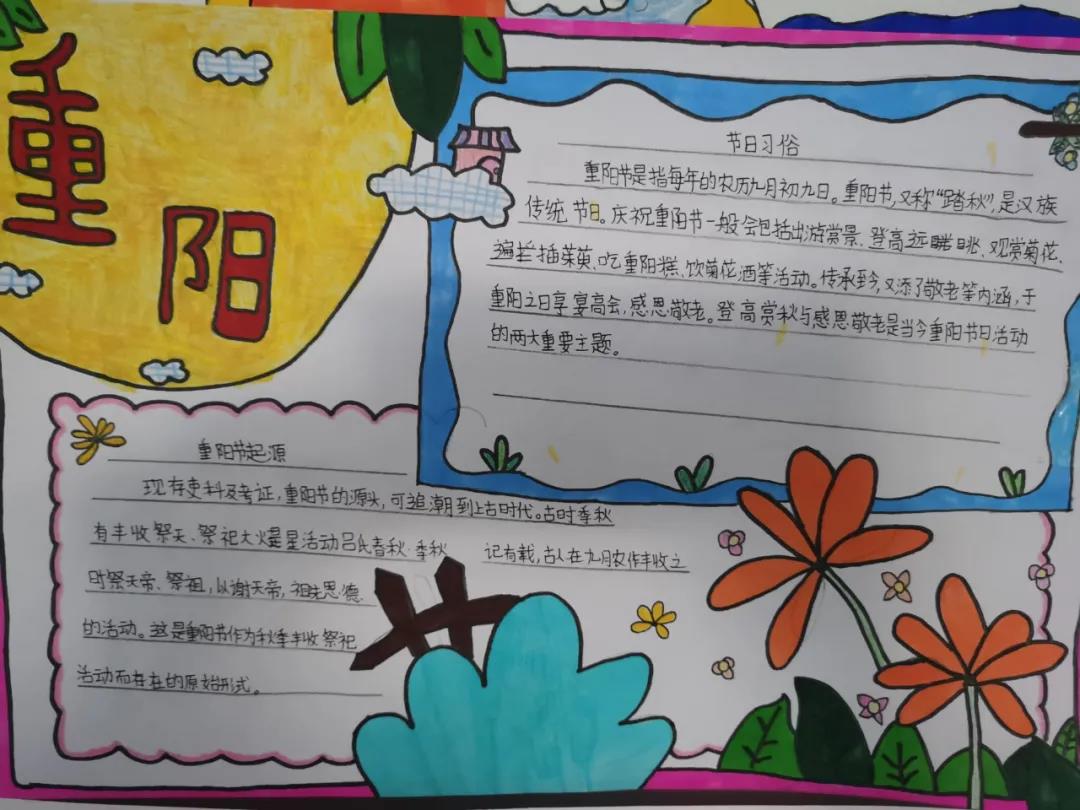 重阳
节日习俗
重阳节是指每年的农历九月初九日。重阳节,又称“踏秋”,是汉族
传统节日。庆祝重阳节一般会包括出游赏景、登高远眺、观赏菊花、
遍拦插茱萸、吃重阳糕、饮菊花酒等活动。传承至今,又添了敬老等内涵,于
重阳之日享宴高会,感恩敬老。登高赏秋与感恩敬老是当今重阳节日活动
的两大重要主题。
重阳节起源
现存史料及考证,重阳节的源头,可追潮到上古时代。古时季秋
有丰收祭天、祭祀大火星活动吕氏春秋·季秋 记有载,古人在九月农作丰收之
时祭天帝、祭祖,以谢天帝,祖先恩德
的活动。这是重阳节作为秋季丰收祭祀
活动而存在的原始形式。